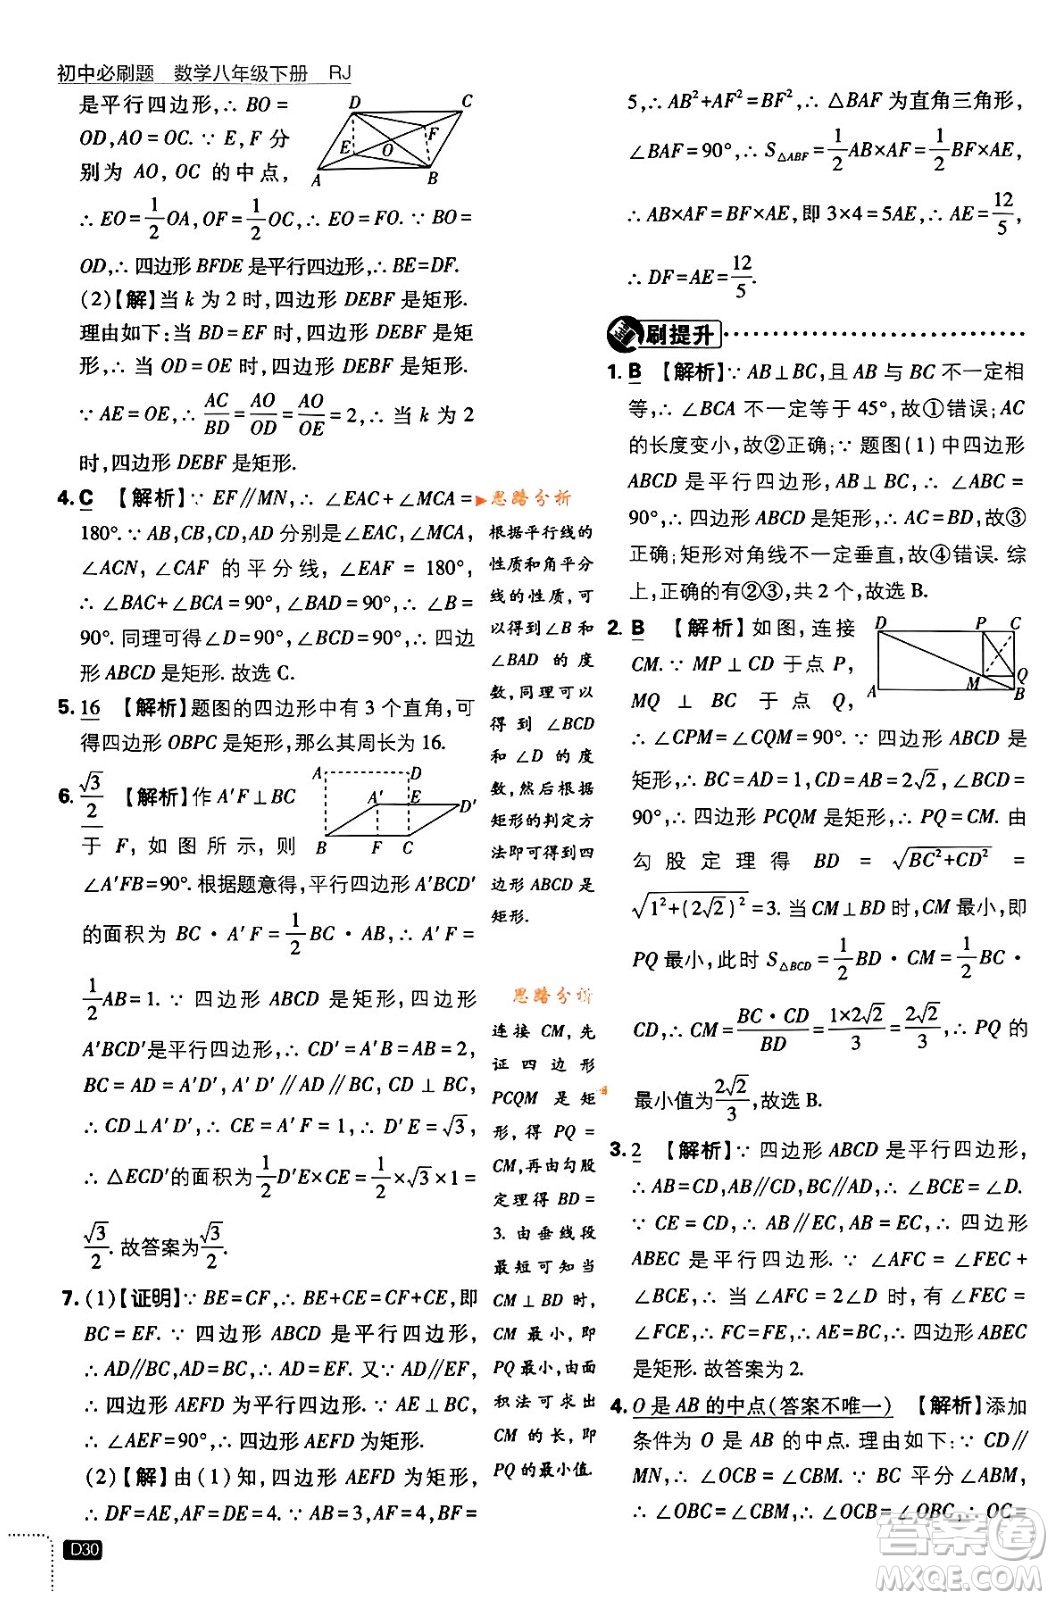 初中必刷题 数学八年级下册 RJ
是平行四边形,∴ BO =
OD,AO = OC. ∵ E, F 分
别为 AO, OC 的中点,
∴ EO = 1/2 OA, OF = 1/2 OC, ∴ EO = FO. ∵ BO =
OD,∴ 四边形 BFDE 是平行四边形,∴ BE = DF.
(2)【解】当 k 为 2 时,四边形 DEBF 是矩形.
理由如下:当 BD = EF 时,四边形 DEBF 是矩
形,∴ 当 OD = OE 时,四边形 DEBF 是矩形.
∵ AE = OE,∴ AC/BD = AO/OD = AO/OE = 2,∴ 当 k 为 2
时,四边形 DEBF 是矩形.
D C E F O A B
4. C 【解析】∵ EF∥MN,∴ ∠EAC+∠MCA =
180°. ∵ AB, CB, CD, AD 分别是∠EAC, ∠MCA,
∠ACN, ∠CAF 的平分线, ∠EAF = 180°,
∴ ∠BAC+∠BCA = 90°, ∠BAD = 90°. ∴ ∠B =
90°. 同理可得∠D = 90°, ∠BCD = 90°,∴ 四边
形 ABCD 是矩形. 故选 C.
5. 16 【解析】题图的四边形中有 3 个直角,可
得四边形 OBPC 是矩形,那么其周长为 16.
6. √3/2 【解析】作 A′F⊥BC
于 F, 如图所示, 则
∠A′FB = 90°. 根据题意得,平行四边形 A′BCD′
的面积为 BC · A′F = 1/2 BC · AB,∴ A′F =
1/2 AB = 1. ∵ 四边形 ABCD 是矩形,四边形
A′BCD′是平行四边形,∴ CD′ = A′B = AB = 2,
BC = AD = A′D′, A′D′∥AD∥BC, CD⊥BC,
∴ CD⊥A′D′,∴ CE = A′F = 1,∴ D′E = √3,
∴ △ECD′的面积为 1/2 D′E×CE = 1/2 ×√3×1 =
√3/2. 故答案为 √3/2.
A D A′ E D′ B F C
7. (1)【证明】∵ BE = CF,∴ BE+CE = CF+CE,即
BC = EF. ∵ 四边形 ABCD 是平行四边形,
∴ AD∥BC, AD = BC,∴ AD = EF. 又∵ AD∥EF,
∴ 四边形 AEFD 为平行四边形. ∵ AE⊥BC,
∴ ∠AEF = 90°,∴ 四边形 AEFD 为矩形.
(2)【解】由(1)知,四边形 AEFD 为矩形,
∴ DF = AE, AF = DE = 4. ∵ AB = 3, BF =
思路分析
根据平行线的
性质和角平分
线的性质,可
以得到∠B 和
∠BAD 的度
数,同理可以
得到∠BCD
和∠D 的度
数,然后根据
矩形的判定方
法即可得到四
边形 ABCD 是
矩形.
思路分析
连接 CM, 先
证四边形
PCQM 是矩
形,得 PQ =
CM,再由勾股
定理得 BD =
3. 由垂线段
最短可知当
CM⊥BD 时,
CM 最小, 即
PQ 最小,由面
积法可求出
CM 的长, 即
PQ 的最小值.
5,∴ AB²+AF² = BF²,∴ △BAF 为直角三角形,
∠BAF = 90°,∴ S△ABF = 1/2 AB×AF = 1/2 BF×AE,
∴ AB×AF = BF×AE,即 3×4 = 5AE,∴ AE = 12/5,
∴ DF = AE = 12/5.
刷提升
1. B 【解析】∵ AB⊥BC,且 AB 与 BC 不一定相
等,∴ ∠BCA 不一定等于 45°,故①错误;AC
的长度变小,故②正确;∵ 题图(1)中四边形
ABCD 是平行四边形, AB⊥BC,∴ ∠ABC =
90°,∴ 四边形 ABCD 是矩形,∴ AC = BD,故③
正确;矩形对角线不一定垂直,故④错误. 综
上,正确的有②③,共 2 个,故选 B.
2. B 【解析】如图,连接
CM. ∵ MP⊥CD 于点 P,
MQ⊥BC 于点 Q,
∴ ∠CPM = ∠CQM = 90°. ∵ 四边形 ABCD 是
矩形,∴ BC = AD = 1, CD = AB = 2√2, ∠BCD =
90°,∴ 四边形 PCQM 是矩形,∴ PQ = CM. 由
勾股定理得 BD = √(BC²+CD²) =
√(1²+(2√2)²) = 3. 当 CM⊥BD 时, CM 最小,即
PQ 最小,此时 S△BCD = 1/2 BD · CM = 1/2 BC ·
CD,∴ CM = BC · CD/BD = 1×2√2/3 = 2√2/3,∴ PQ 的
最小值为 2√2/3,故选 B.
D P C M Q A B
3. 2 【解析】∵ 四边形 ABCD 是平行四边形,
∴ AB = CD, AB∥CD, BC∥AD,∴ ∠BCE = ∠D.
∵ CE = CD,∴ AB∥EC, AB = EC,∴ 四边形
ABEC 是平行四边形. ∵ ∠AFC = ∠FEC +
∠BCE,∴ 当∠AFC = 2∠D 时, 有∠FEC =
∠FCE,∴ FC = FE,∴ AE = BC,∴ 四边形 ABEC
是矩形. 故答案为 2.
4. O 是 AB 的中点(答案不唯一) 【解析】添加
条件为 O 是 AB 的中点. 理由如下:∵ CD∥
MN,∴ ∠OCB = ∠CBM. ∵ BC 平分∠ABM,
∴ ∠OBC = ∠CBM,∴ ∠OCB = ∠OBC,∴ OC =
D30
答案圈
MXQE.COM